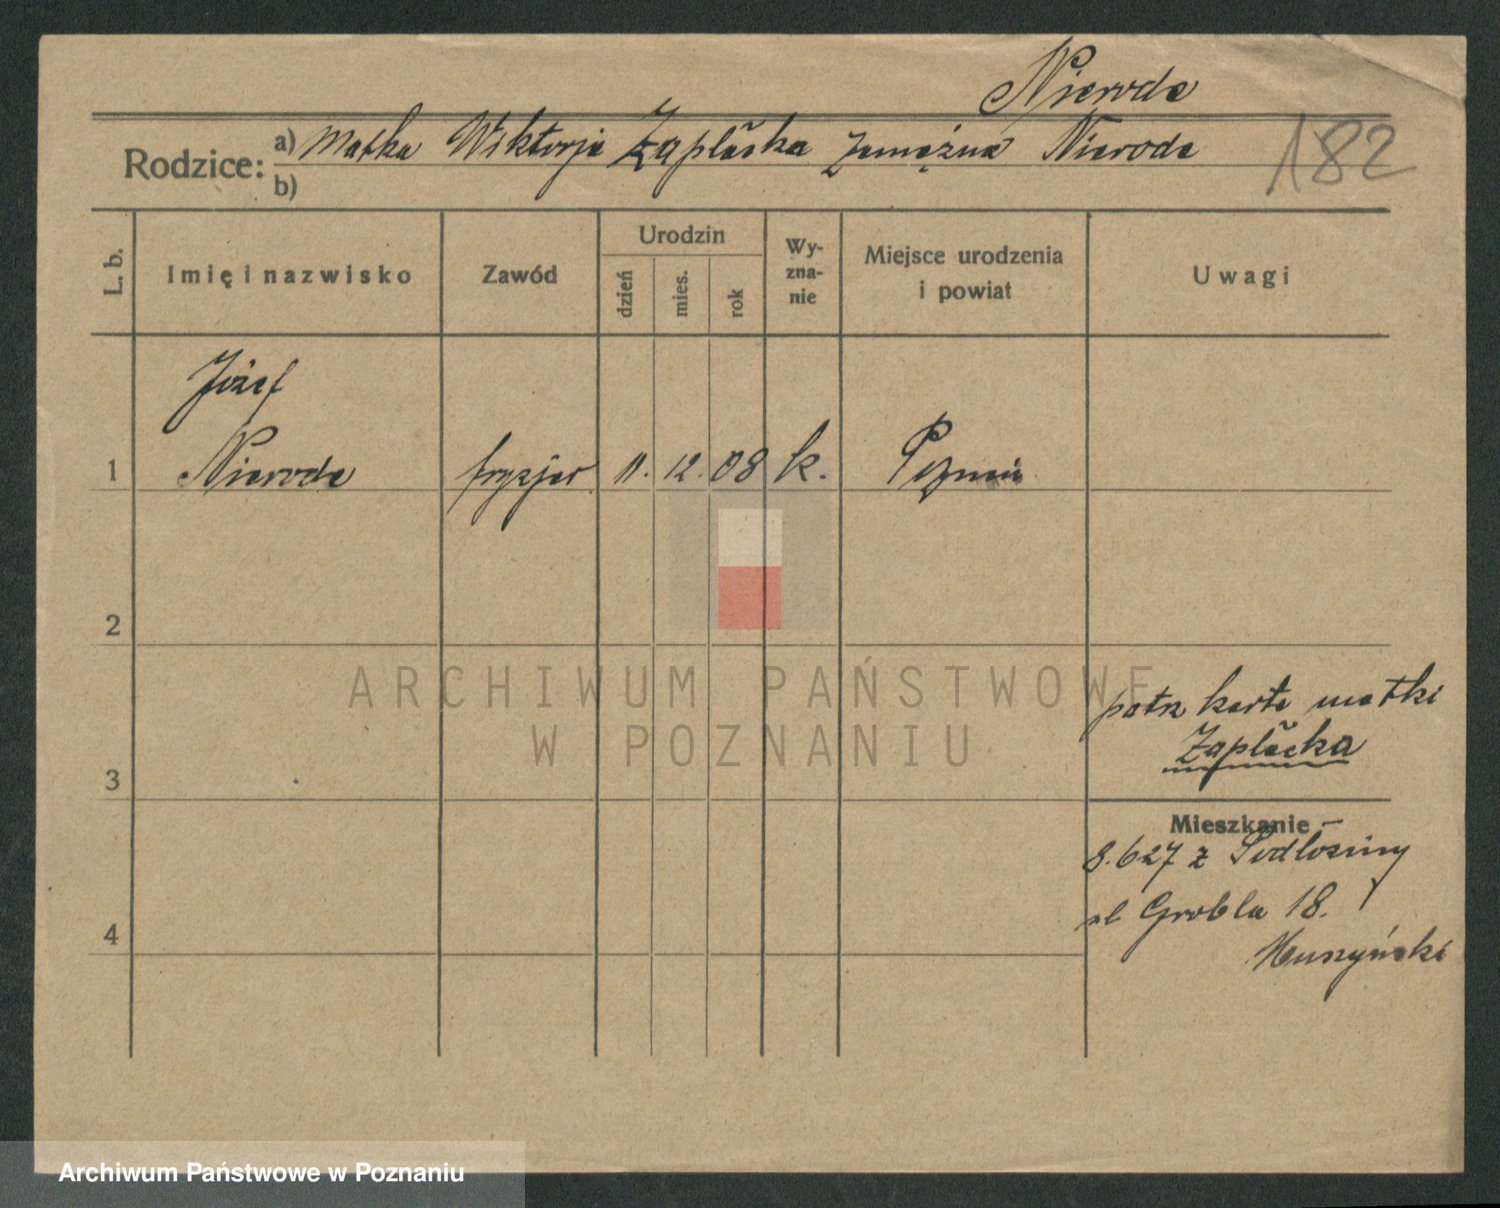 Nieroda
182
Rodzice:
a) Matka Wiktorja Zapłacka zamężna Nieroda
b)
L. b.
Imię i nazwisko
Zawód
Urodzin
dzień
mies.
rok
Wy-
zna-
nie
Miejsce urodzenia
i powiat
Uwagi
Józef
1 Nieroda fryzjer 11. 12. 08 k. Poznań
2
ARCHIWUM PAŃSTWOWE
W POZNANIU
patrz karta matki
Zapłacka
3
Mieszkanie
8.627 z
ul Grobla 18.
4
Muszyński
Archiwum Państwowe w Poznaniu